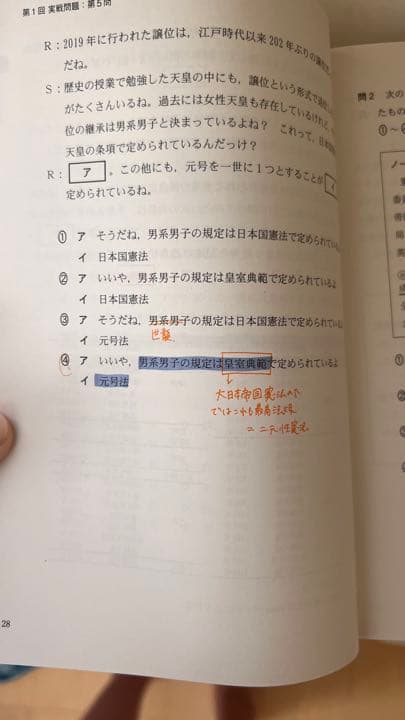 第1回 実戦問題:第5問
R:2019年に行われた譲位は,江戸時代以来202年ぶりの譲位
だね。
S:歴史の授業で勉強した天皇の中にも,譲位という形式で
がたくさんいるね。過去には女性天皇も存在しているけれど,
位の継承は男系男子と決まっているよね? これって,日本
天皇の条項で定められているんだっけ?
R: ア 。この他にも,元号を一世に1つとすることが イ
定められているね。
① ア そうだね,男系男子の規定は日本国憲法で定められている
イ 日本国憲法
② ア いいや,男系男子の規定は皇室典範で定められているよ
イ 日本国憲法
③ ア そうだね,男系男子の規定は日本国憲法で定められている
世襲
イ 元号法
④ ア いいや,男系男子の規定は皇室典範で定められているよ
イ 元号法
大日本帝国憲法の下
ではこれも最高法規
28
問2 次の
たもの
①~
ノー
①